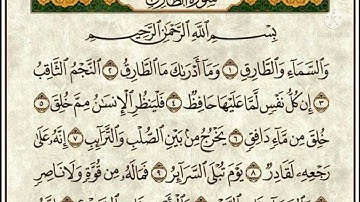 سورة الطارق
بِسْمِ اللَّهِ الرَّحْمَٰنِ الرَّحِيمِ
وَالسَّمَاءِ وَالطَّارِقِ ١ وَمَا أَدْرَاكَ مَا الطَّارِقُ ٢ النَّجْمُ الثَّاقِبُ
٣ إِن كُلُّ نَفْسٍ لَّمَّا عَلَيْهَا حَافِظٌ ٤ فَلْيَنظُرِ الْإِنسَانُ مِمَّ خُلِقَ ٥
خُلِقَ مِن مَّاءٍ دَافِقٍ ٦ يَخْرُجُ مِن بَيْنِ الصُّلْبِ وَالتَّرَائِبِ ٧ إِنَّهُ عَلَىٰ
رَجْعِهِ لَقَادِرٌ ٨ يَوْمَ تُبْلَى السَّرَائِرُ ٩ فَمَا لَهُ مِن قُوَّةٍ وَلَا نَاصِرٍ